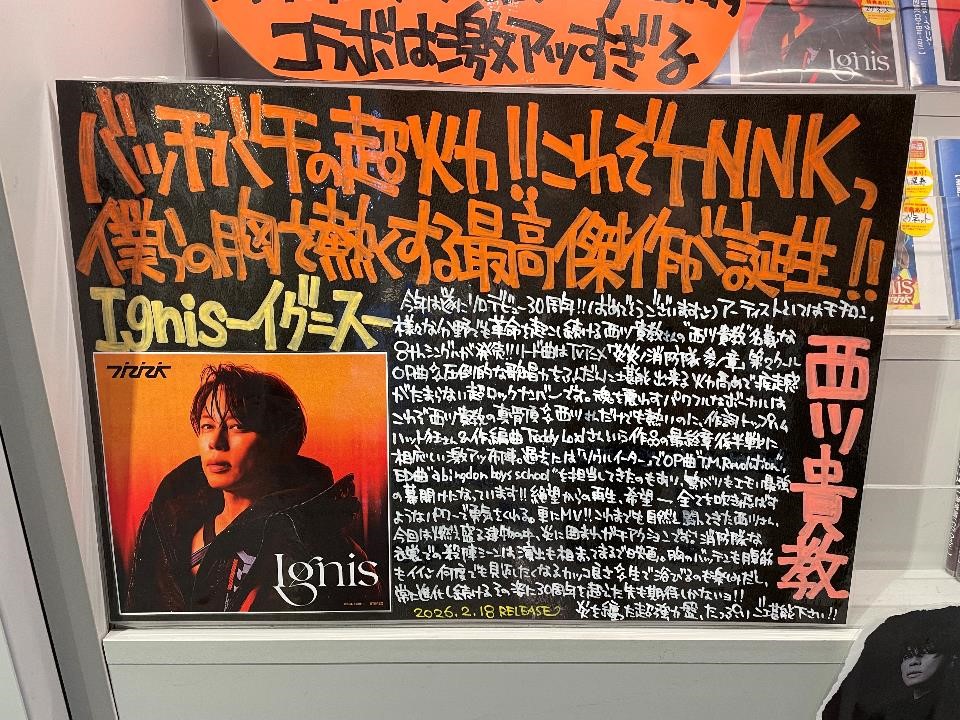 コラボは激アツすぎる
Ignis
バッチバチの超火力!!これぞTNNK、
僕らの胸を熱くする最高傑作が誕生!!
Ignis-イグニス-
今年は遂にソロデビュー30周年!!おめでとうございますっ アーティストといつはモチロン、
様々な分野でも革命を起こし続ける西川貴教さんの"西川貴教"名義な
8thシングルが発売!!リード曲はTVアニメ"炎炎ノ消防隊 参ノ章"第2クール
OP曲 圧倒的な歌唱力をふんだんに堪能出来る火力高めで疾走感
がたまらない超ロックナンバーです。魂を震わすパワフルなボーカルは
これぞ西川貴教の真骨頂 西川さんだけでも熱いのに、作詞
ハット さん&作編曲Teddy Loidさんという作品の最終章後半戦に
相応しい激アツ布陣 過去には"ソウルイーター"でOP曲"T.M.Revolution",
ED曲"abingdon boys school"を担当してきたのもあり、繋がりもエモい最強
の幕開けになっています!!絶望からの再生、希望― 全てを吹き飛ばす
ようなパワーで勇気をくれる。更にMV!!これまでも自然と 闘ってきた西川さん、
今回は燃え盛る建物の中、炎に囲まれながらアクション 消防隊な
衣装での殺陣シーンは演出も相まってまるで映画。胸のバッテンも腹筋
もイイッ 何度でも見返したくなるカッコ良さ 生で浴びるのも楽しみだし、
常に進化し続けるその姿に30周年を超えた先も期待しかないヨ!!
2026.2.18 RELEASE
炎を纏った超強力盤、たっぷりご堪能下さい!!
西川貴教
Ignis